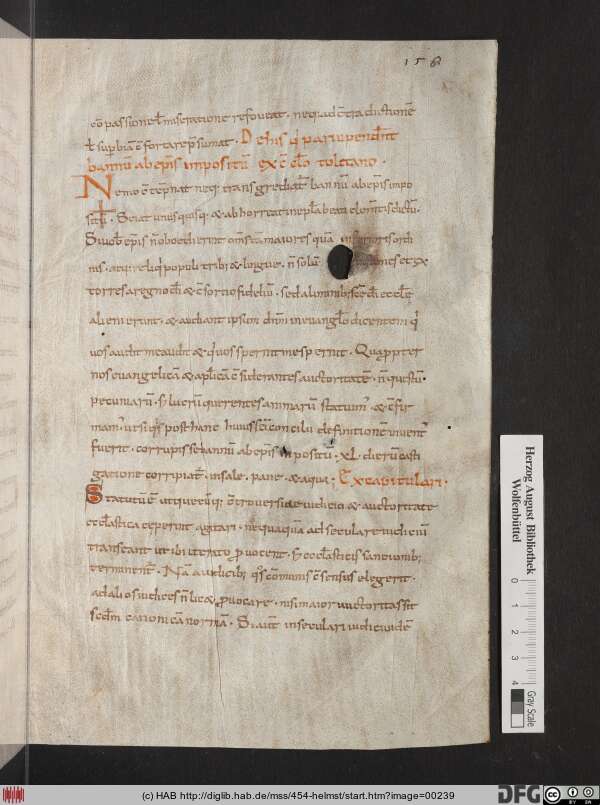 158
cō passione ł miseratione refoveat . neq; ad c̄tradictionē
ł sup̄biā c̄fortare p̄sumat . De his q̇ parvipendūt
bannū ab ep̄is impositū ex c̄cło toletano .
Nemo c̄tēpnat neq; transgrediat̄ bannū ab ep̄is impo
sitū . Sciat unusquisq; & abhorreat
Si vob̄ ep̄is n̄ oboedierint om̄s inferiores ordi
nis . atq; reliq̇ populi tribus & linguę . n̄ solū
torres a regno dī & c̄sortio fideliū . sed a liminib; scē dī ecclę
alieni erunt . & audiant ipsum dn̄m in evanglo dicentem q̇
vos audit me audit & q̇ vos spernit me spernit . Quapp̄ter
nos evangelicā & apłicā c̄siderantes auctoritatē . n̄ questū
pecuniarū . s̄ lucrū querentes animarū statuim; & c̄fir
mam; ut si q̇s post hanc huius sc̄i concilii definitionē
fuerit . corrupisse bannū ab ep̄is inpositū . xl . dierū casti
gatione corripiat̄ . in sale . pane & aqua ; Ex capitulari .
Statutū ē ut quecūq; c̄troversie iudicio & auctoritate
eccłastica ceperint agitari . nequaquā ad seculare iudiciū
transeant ut ibi iterato p̄vocent . s̄ eccłasticis sanctionib;
terminent̄ . Nā a iudicib; q̇s cōmunis c̄sensus elegerit .
ad alios iudices n̄ licet p̄vocare . nisi maior auctoritas sit
scdm̄ canonicā normā . Si aut̄ in seculari iudicio idē
Herzog August Bibliothek
Wolfenbüttel
0 1 2 3 4
Gray Scale
(c) HAB http://diglib.hab.de/mss/454-helmst/start.htm?image=00239
DFG
cc BY SA